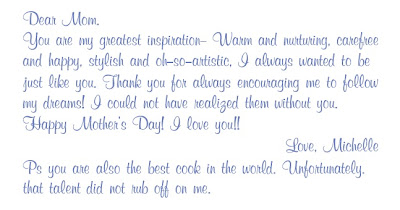 Dear Mom,
You are my greatest inspiration- Warm and nurturing, carefree
and happy, stylish and oh-so-artistic. I always wanted to be
just like you. Thank you for always encouraging me to follow
my dreams! I could not have realized them without you.
Happy Mother's Day! I love you!!
Love, Michelle
Ps you are also the best cook in the world. Unfortunately,
that talent did not rub off on me.